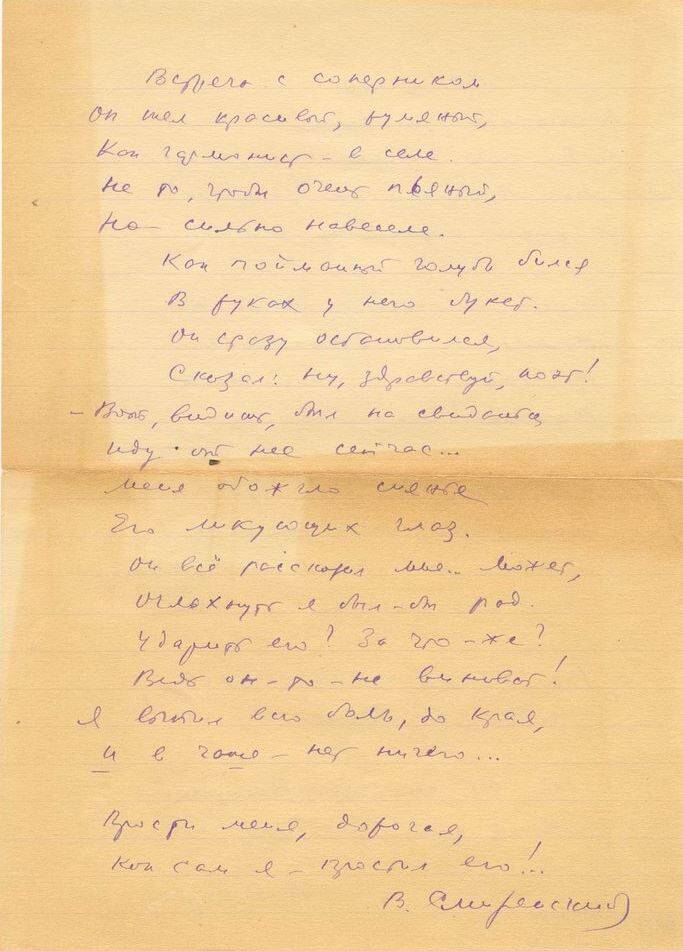 Встреча с соперником
Он шел красивый, румяный,
Как гармонист – в селе.
Не то, чтобы очень пьяный,
Но – сильно навеселе.
Как пойманный голубь бился
В руках у него букет.
Он сразу остановился,
Сказал: ну, здравствуй, поэт!
– Вот, видишь, был на свиданьи,
Иду от нее сейчас...
Меня обожгло сиянье
Его ликующих глаз.
Он всё рассказал мне.. Может,
Оглохнуть я был-бы рад.
Ударить его? За что-же?
Ведь он-то – не виноват!
Я выпил всю боль, до края,
И в чаше – нет ничего...
Прости меня, дорогая,
Как сам я – простил его!..
В. Смиренский